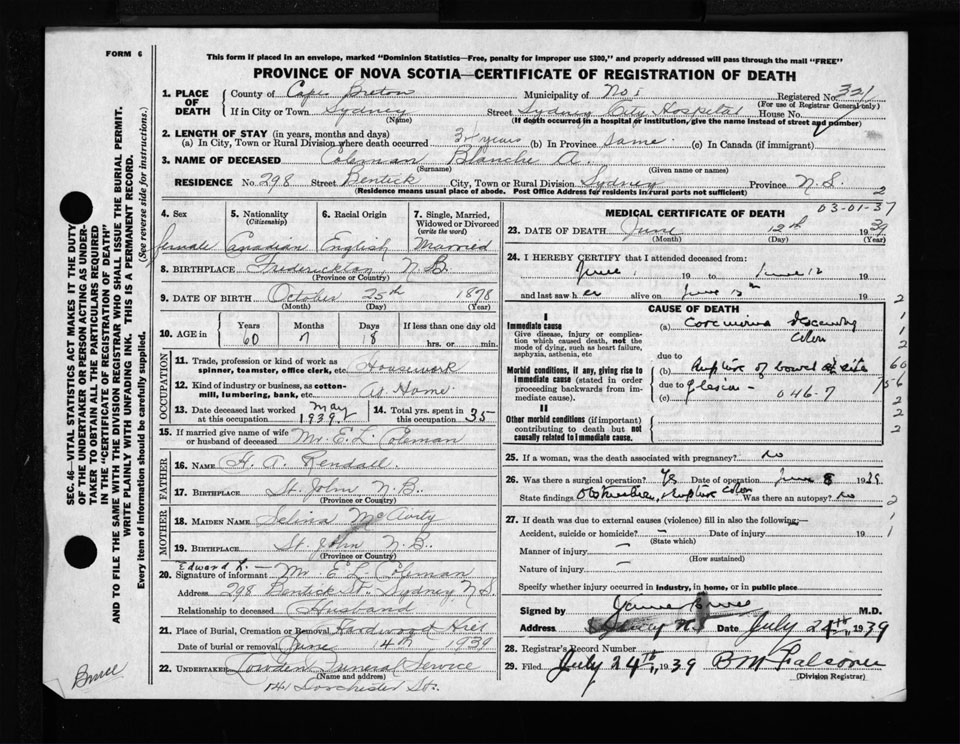 FORM 6
This form if placed in an envelope, marked "Dominion Statistics—Free, penalty for improper use $300," and properly addressed will pass through the mail "FREE"
PROVINCE OF NOVA SCOTIA—CERTIFICATE OF REGISTRATION OF DEATH
SEC. 46—VITAL STATISTICS ACT MAKES IT THE DUTY
OF THE UNDERTAKER OR PERSON ACTING AS UNDER-
TAKER TO OBTAIN ALL THE PARTICULARS REQUIRED
IN THE "CERTIFICATE OF REGISTRATION OF DEATH"
AND TO FILE THE SAME WITH THE DIVISION REGISTRAR WHO SHALL ISSUE THE BURIAL PERMIT.
WRITE PLAINLY WITH UNFADING INK. THIS IS A PERMANENT RECORD.
Every item of information should be carefully supplied. (See reverse side for instructions.)
1. PLACE OF DEATH County of Cape Breton Municipality of No 1 Registered No. 321
(For use of Registrar General only)
If in City or Town Sydney (Name) Street Sydney City Hospital House No.
(If death occurred in a hospital or institution, give the name instead of street and number)
2. LENGTH OF STAY (in years, months and days)
(a) In City, Town or Rural Division where death occurred years (b) In Province Same (c) In Canada (if immigrant)
3. NAME OF DECEASED Coleman Blanche A.
(Surname) (Given name or names)
RESIDENCE No. 298 Street Bentick City, Town or Rural Division Sydney Province N.S. 2
(Residence means usual place of abode. Post Office Address for residents in rural parts not sufficient)
4. Sex female
5. Nationality (Citizenship) Canadian
6. Racial Origin English
7. Single, Married, Widowed or Divorced (write the word) Married
8. BIRTHPLACE Fredericton, N.B.
(Province or Country)
9. DATE OF BIRTH October 25th 1878
(Month) (Day) (Year)
10. AGE in Years 60 Months 7 Days 18 If less than one day hrs. or min.
OCCUPATION
11. Trade, profession or kind of work as spinner, teamster, office clerk, etc. Housework
12. Kind of industry or business, as cotton-mill, lumbering, bank, etc. At Home
13. Date deceased last worked at this occupation May 1939 14. Total yrs. spent in this occupation 35
15. If married give name of wife or husband of deceased Mr. E. L. Coleman
FATHER
16. NAME H. A. Rendall
17. BIRTHPLACE St. John N.B.
(Province or Country)
MOTHER
18. MAIDEN NAME Selina McAvity
19. BIRTHPLACE St. John N.B.
(Province or Country)
Edward L.
20. Signature of informant Mr. E L Coleman
Address 298 Bentick St. Sydney N.S.
Relationship to deceased Husband
21. Place of Burial, Cremation or Removal Hardwood Hill
Date of burial or removal June 14th 1939
22. UNDERTAKER Lowden Funeral Service
(Name and address)
141 Dorchester St.
MEDICAL CERTIFICATE OF DEATH 03-01-37
23. DATE OF DEATH June 12th 1939
(Month) (Day) (Year)
24. I HEREBY CERTIFY that I attended deceased from:
June 1 19 to June 12 19
and last saw her alive on June 19
CAUSE OF DEATH
I
Immediate cause
Give disease, injury or complication which caused death, not the mode of dying, such as heart failure, asphyxia, asthenia, etc
(a) Carcinoma Descending Colon
due to
Morbid conditions, if any, giving rise to immediate cause (stated in order proceeding backwards from immediate cause).
(b) Rupture of bowel at site
due to
(c) 046-7
II
Other morbid conditions (if important) contributing to death but not causally related to immediate cause.
25. If a woman, was the death associated with pregnancy? no
26. Was there a surgical operation? Yes Date of operation June 8 1939
State findings Obstruction, rupture Colon Was there an autopsy? no
27. If death was due to external causes (violence) fill in also the following:—
Accident, suicide or homicide? — Date of injury 19
(State which)
Manner of injury —
(How sustained)
Nature of injury —
Specify whether injury occurred in industry, in home, or in public place
Signed by M.D.
Address Sydney N.S. Date July 24th, 1939
28. Registrar's Record Number
29. Filed July 24th, 1939 B M Falconer
(Division Registrar)
Bruce